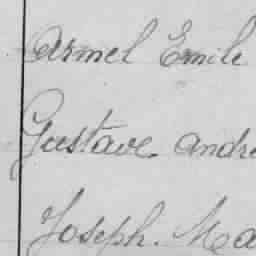 Armel Emile
Gustave André
Joseph. Ma